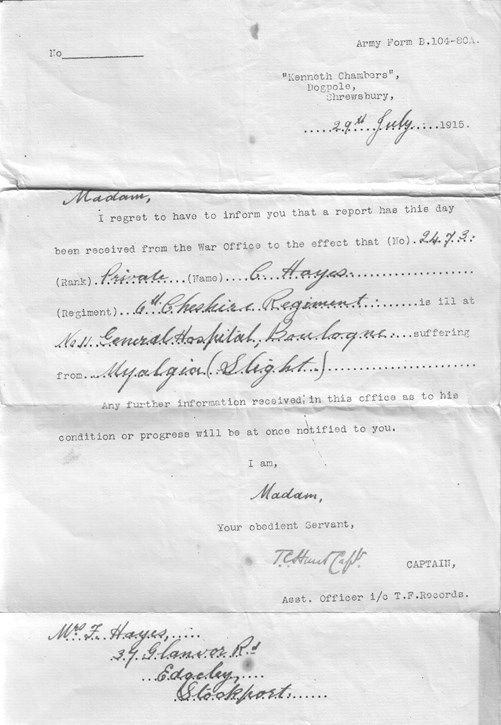 Army Form B.104-80A.
No
"Kenneth Chambers",
Dogpole,
Shrewsbury,
29th July 1915.
Madam,
I regret to have to inform you that a report has this day
been received from the War Office to the effect that (No). 2473:
(Rank). Private (Name) C Hayes:
(Regiment) 6th Cheshire Regiment: is ill at
No 11 General Hospital, Boulogne: suffering
from Myalgia (Slight.)
Any further information received, in this office as to his
condition or progress will be at once notified to you.
I am,
Madam,
Your obedient Servant,
Capt. CAPTAIN,
Asst. Officer i/c T.F.Records.
Mrs F. Hayes,
Rd
Edgeley,
Stockport: